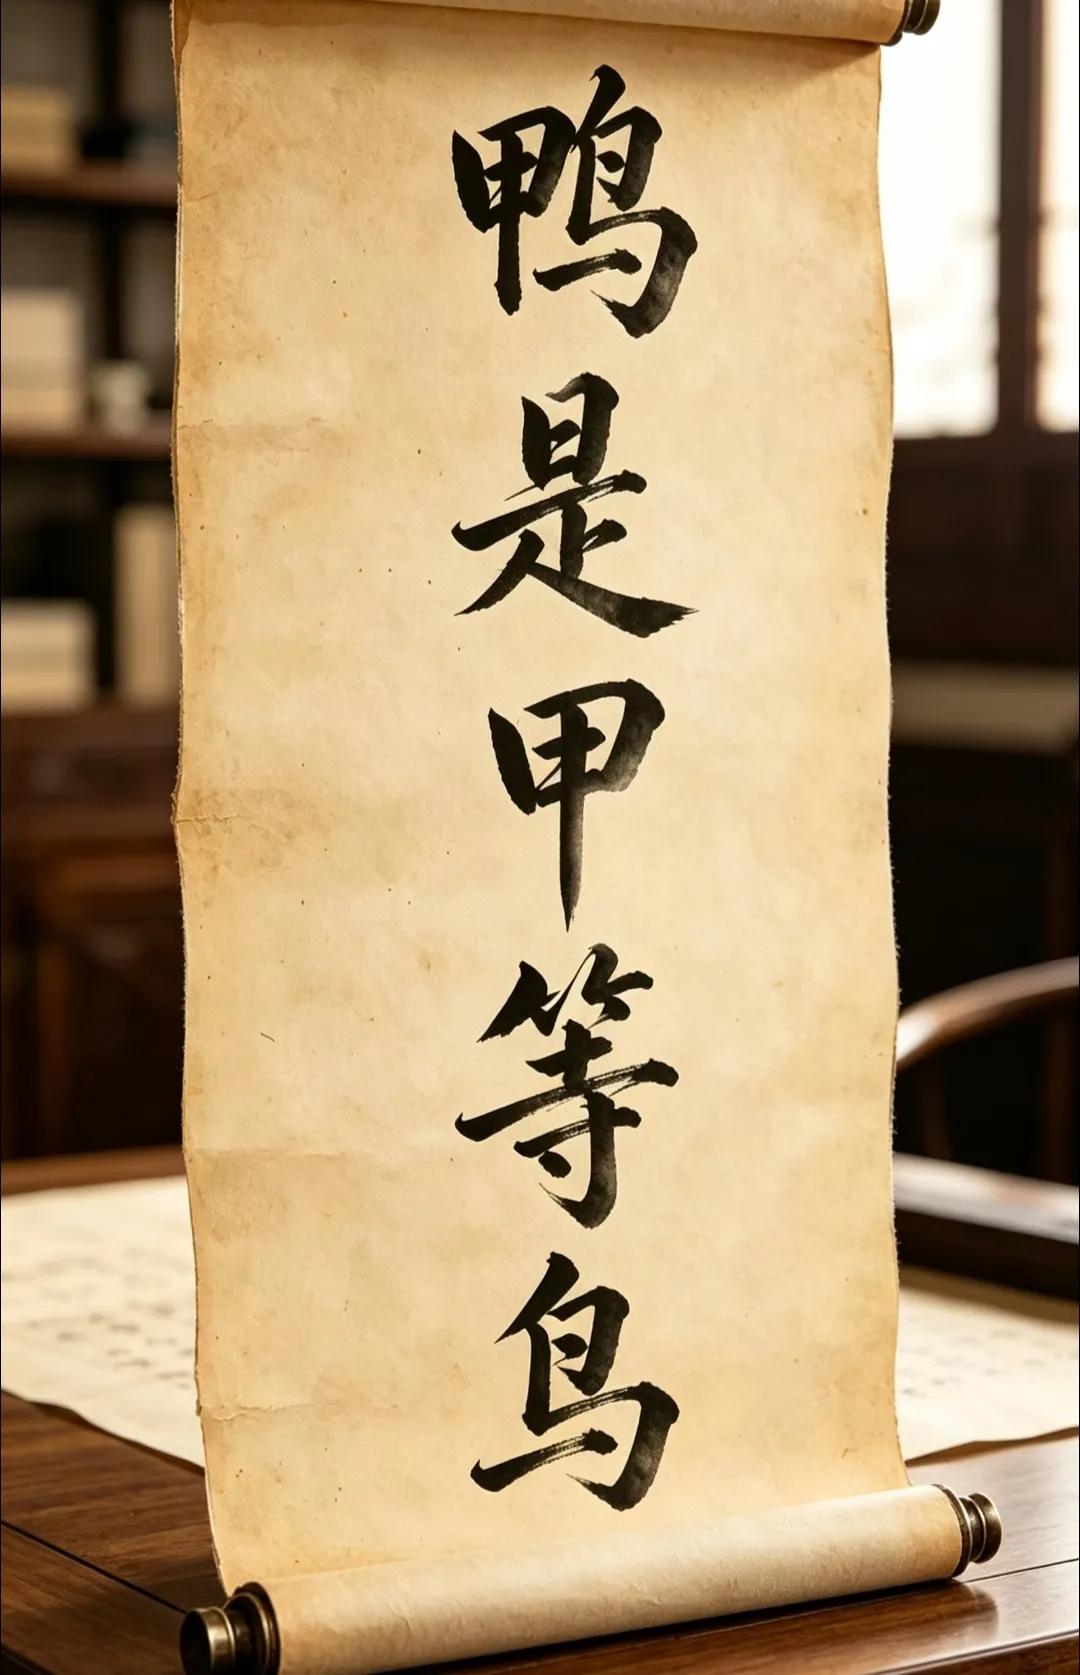 鸭是甲等鸟